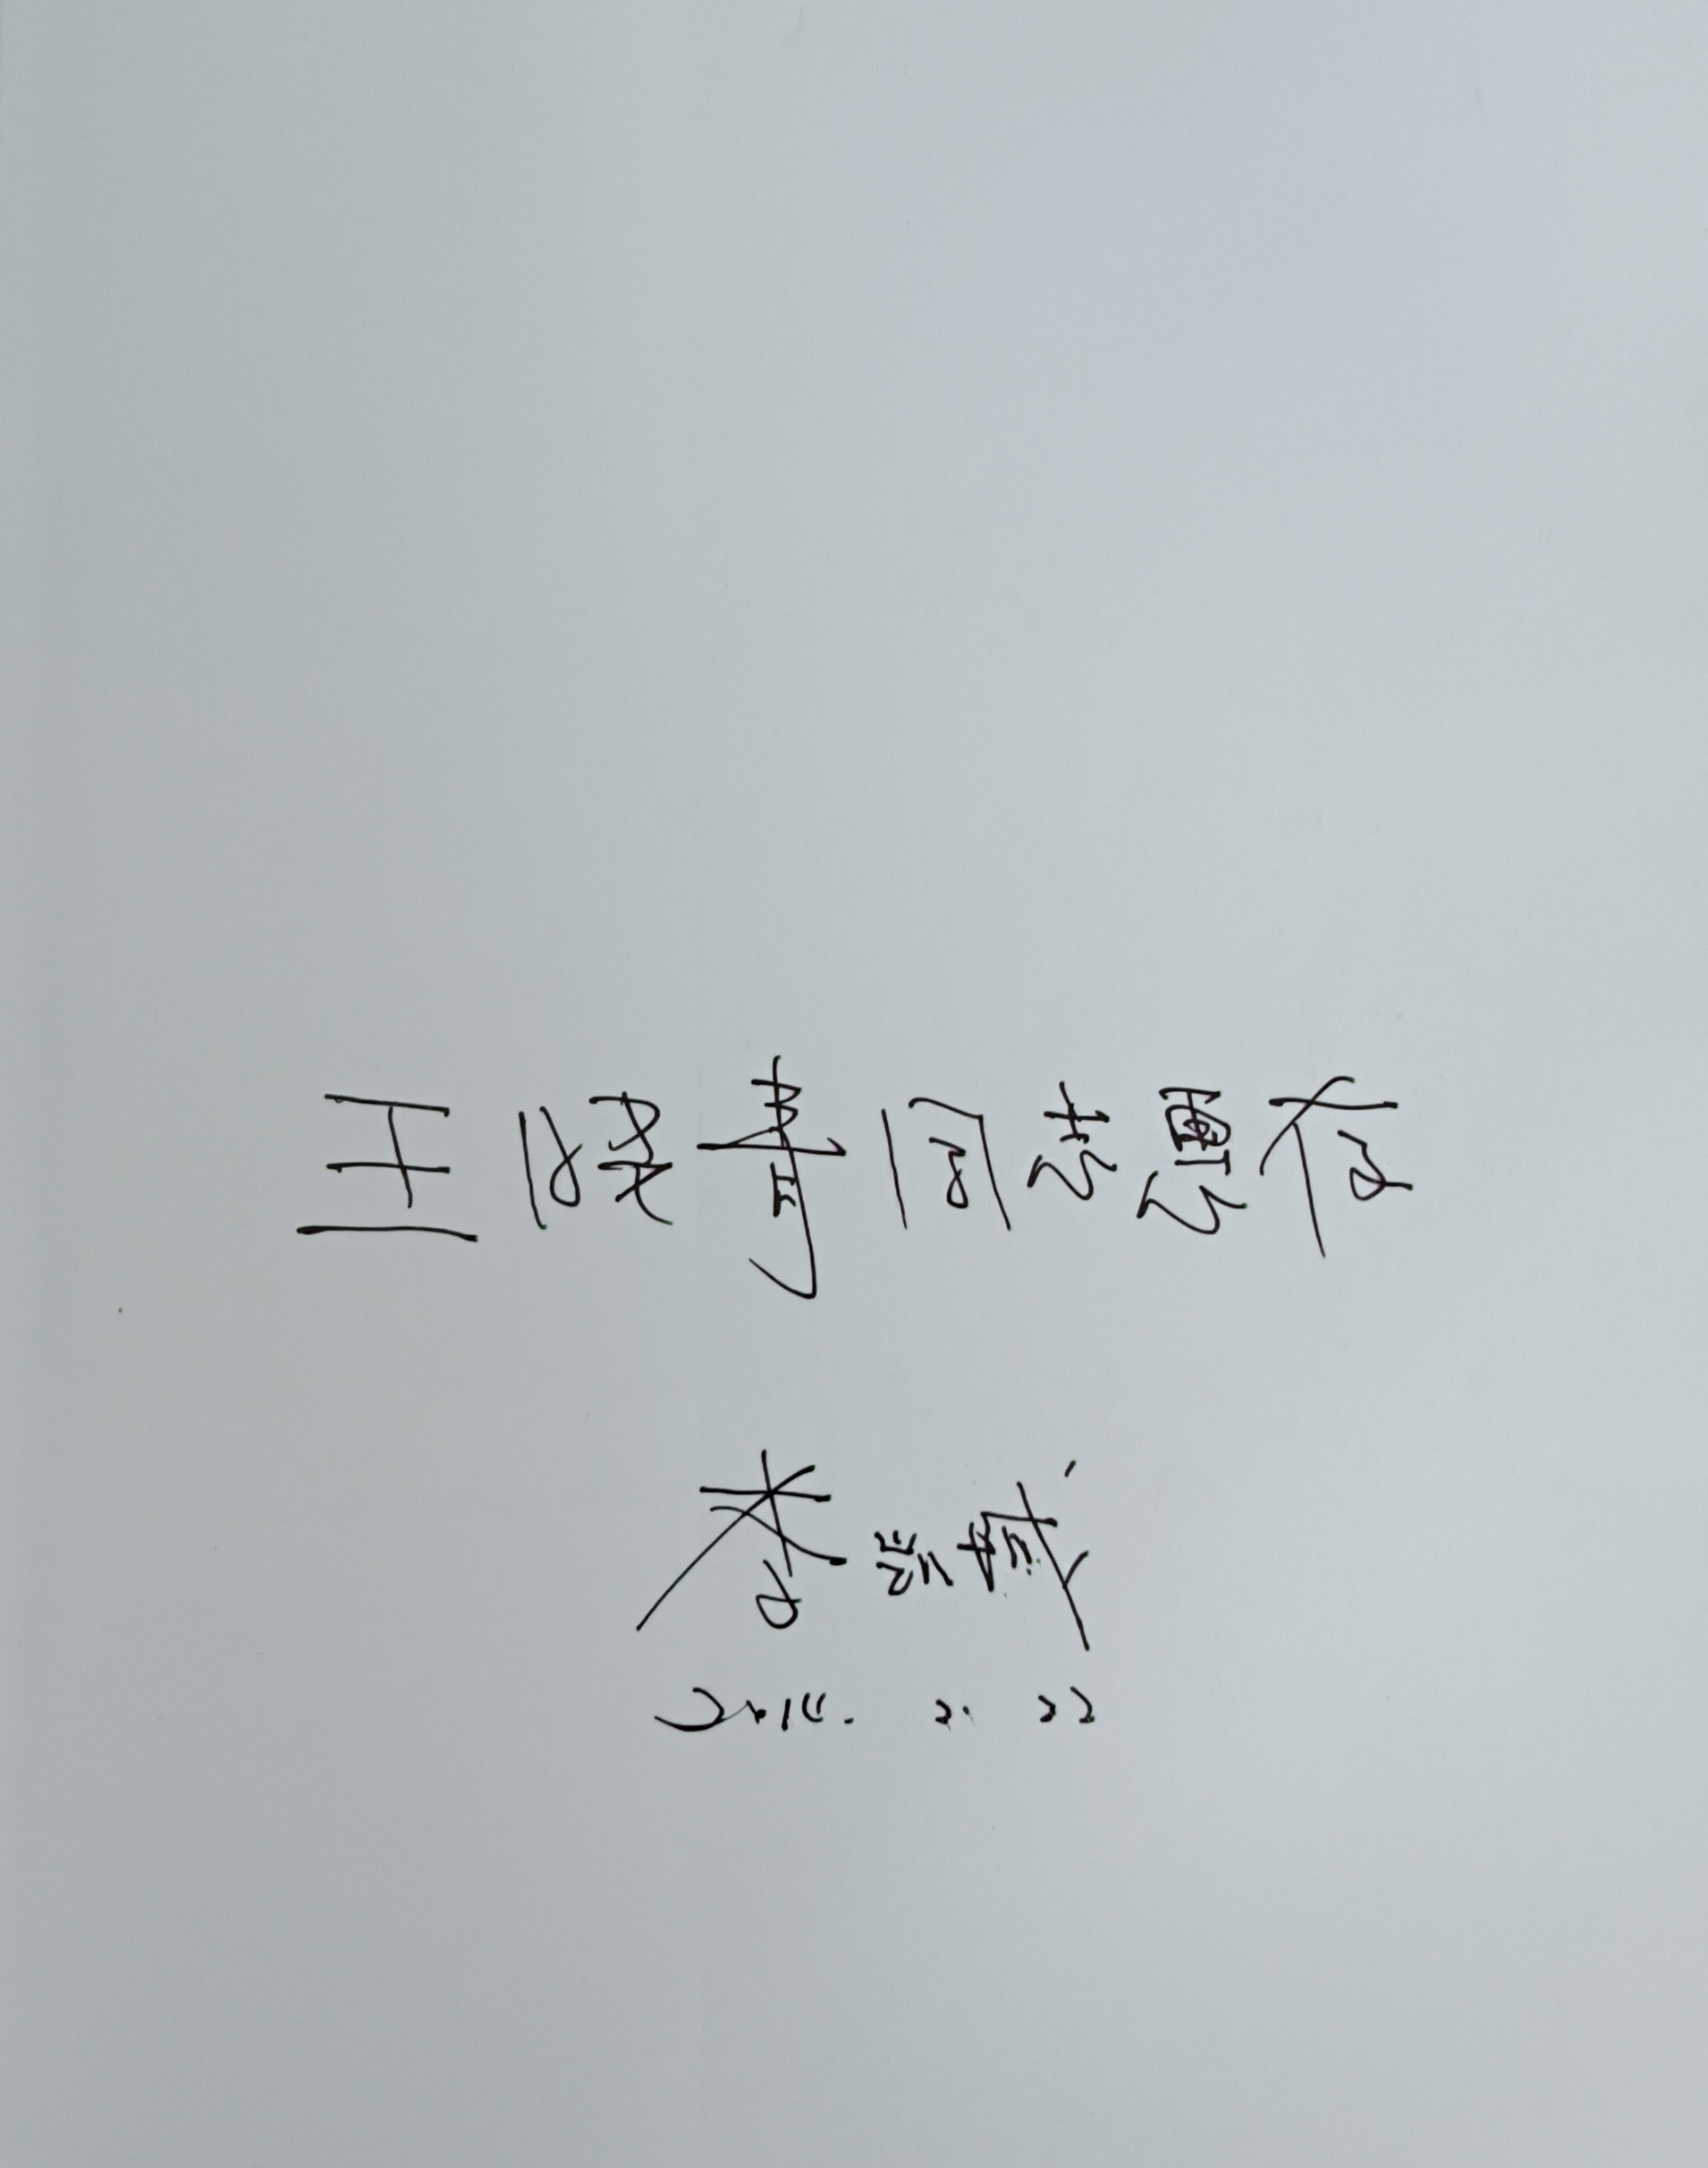 王晓青同志惠存
李凯城
2014. 2. 22